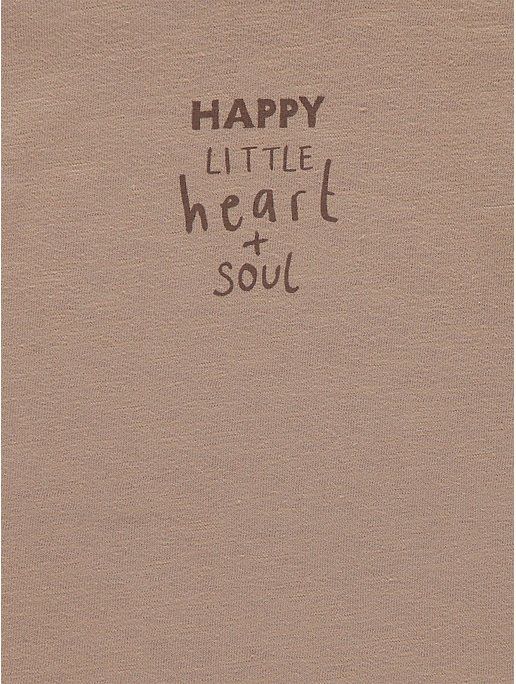 HAPPY
LITTLE
heart
+
SOUL